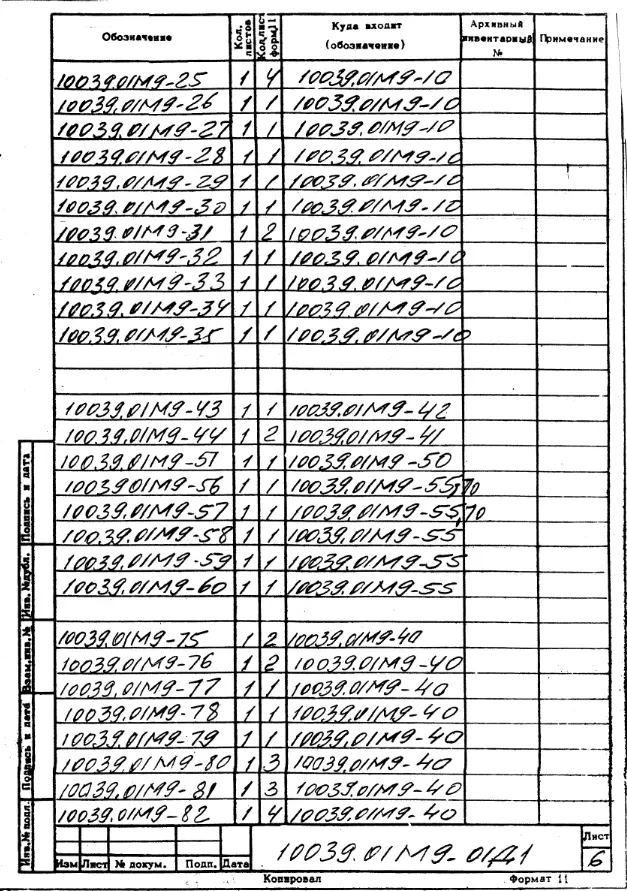 Обозначение Кол. листов Кол.лист форм.11 Куда входит (обозначение) Архивный инвентарный № Примечание
10039.01М9-25 1 4 10039.01М9-10
10039.01М9-26 1 1 10039.01М9-10
10039.01М9-27 1 1 10039.01М9-10
10039.01М9-28 1 1 10039.01М9-10
10039.01М9-29 1 1 10039.01М9-10
10039.01М9-30 1 1 10039.01М9-10
10039.01М9-31 1 2 10039.01М9-10
10039.01М9-32 1 1 10039.01М9-10
10039.01М9-33 1 1 10039.01М9-10
10039.01М9-34 1 1 10039.01М9-10
10039.01М9-35 1 1 10039.01М9-10
10039.01М9-43 1 1 10039.01М9-42
10039.01М9-44 1 2 10039.01М9-41
10039.01М9-51 1 1 10039.01М9-50
10039.01М9-56 1 1 10039.01М9-55,70
10039.01М9-57 1 1 10039.01М9-55,70
10039.01М9-58 1 1 10039.01М9-55
10039.01М9-59 1 1 10039.01М9-55
10039.01М9-60 1 1 10039.01М9-55
10039.01М9-75 1 2 10039.01М9-40
10039.01М9-76 1 2 10039.01М9-40
10039.01М9-77 1 1 10039.01М9-40
10039.01М9-78 1 1 10039.01М9-40
10039.01М9-79 1 1 10039.01М9-40
10039.01М9-80 1 3 10039.01М9-40
10039.01М9-81 1 3 10039.01М9-40
10039.01М9-82 1 4 10039.01М9-40
Инв.№ подл. Подпись и дата Взам.инв.№ Инв. №дубл. Подпись и дата
Изм Лист № докум. Подп. Дата
10039.01М9-01Д1
Лист
6
Копировал Формат 11